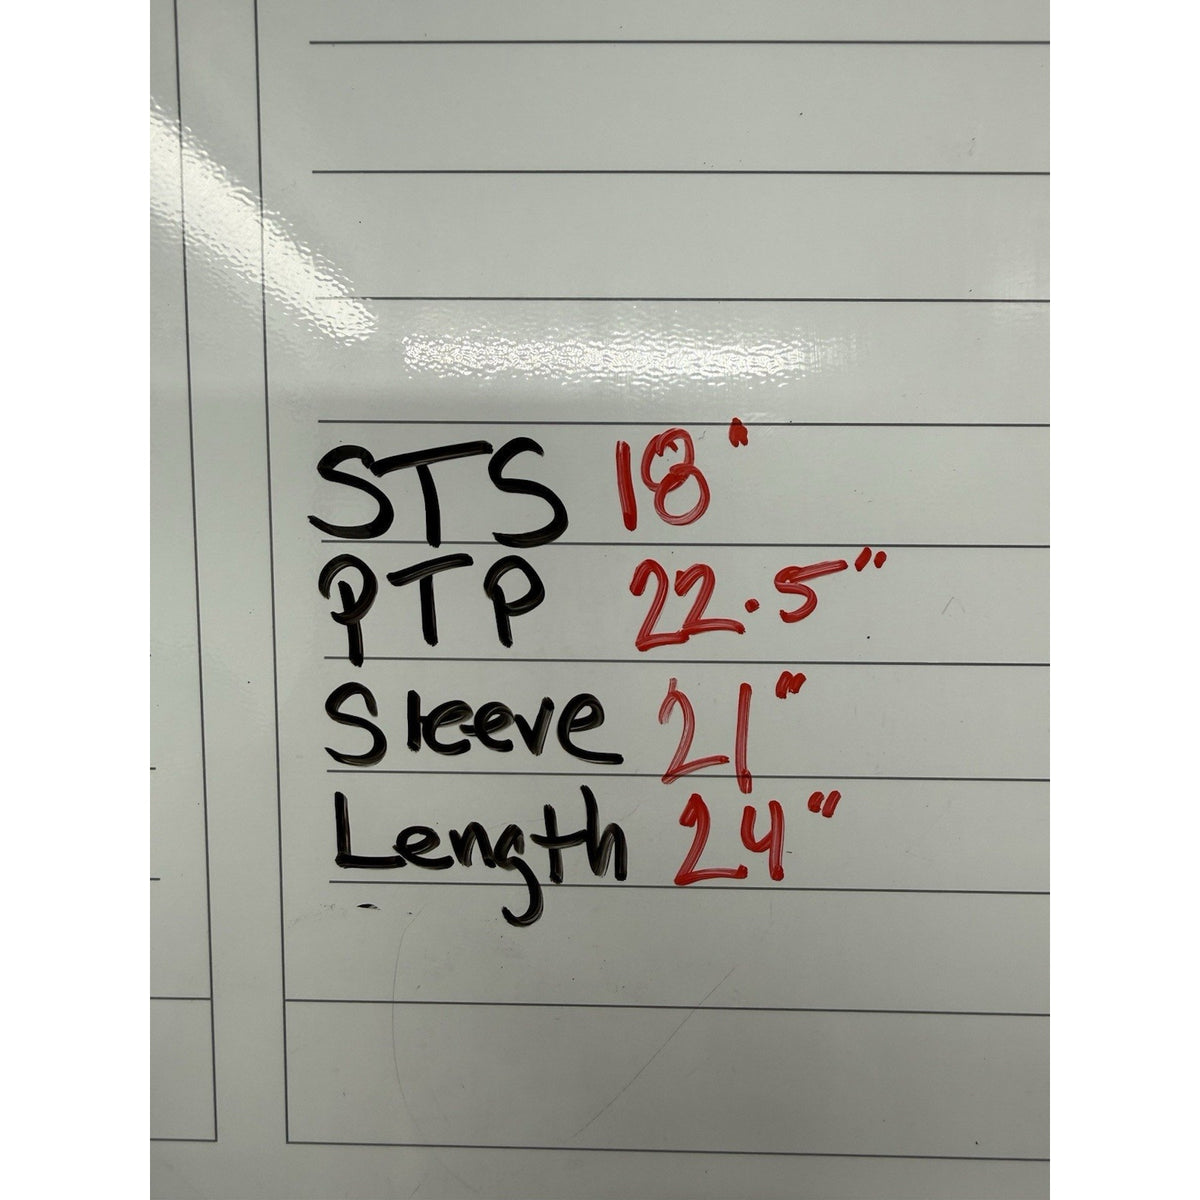 STS 18"
PTP 22.5"
Sleeve 21"
Length 24"